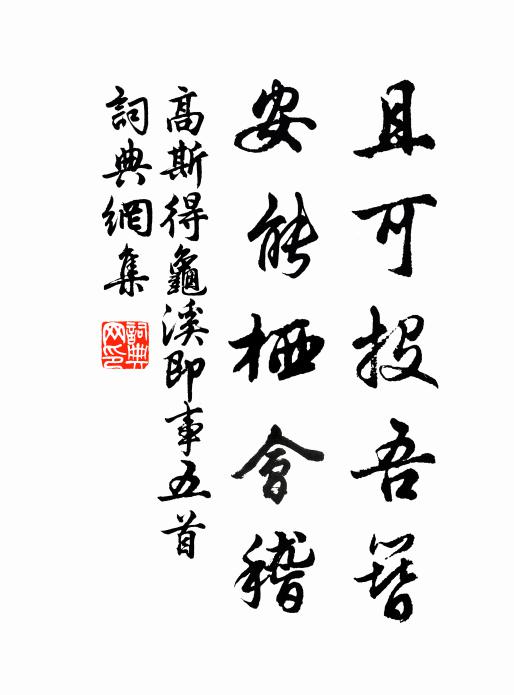 且可投吾簪
安能栖會稽
高斯得龜溪即事五首
詞典網集
詞典網印